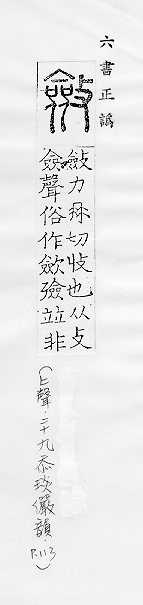 六書正譌
斂
斂力冄切收也从攴
僉聲俗作歛殮竝非
(上聲·二十九忝琰儼韻·P.113)